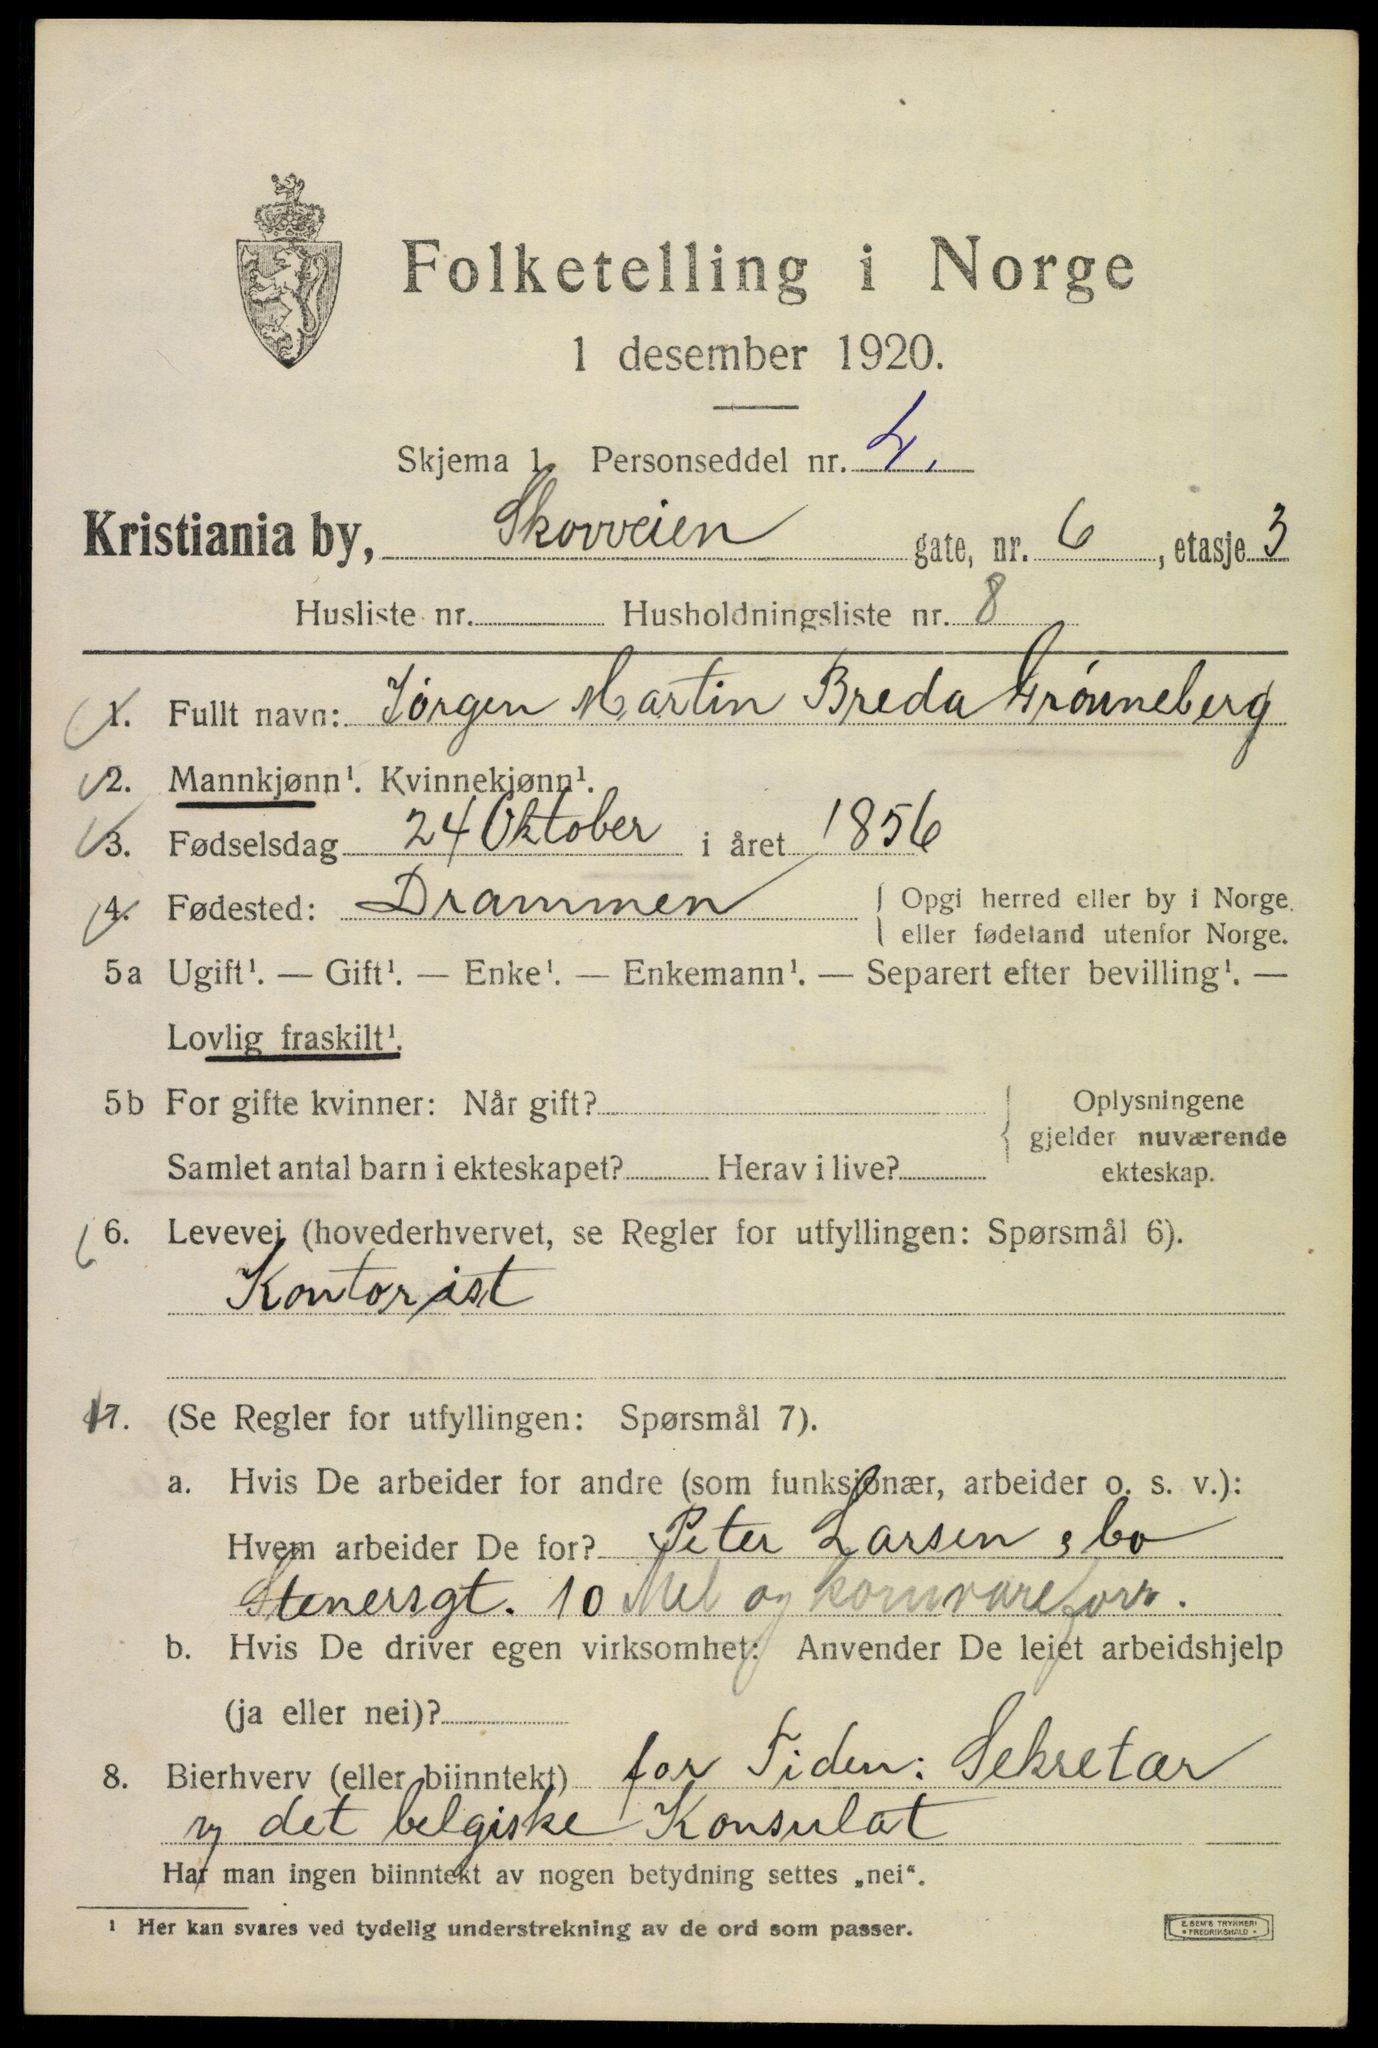 Folketelling i Norge
1 desember 1920.
Skjema 1. Personseddel nr. 4.
Kristiania by, Skovveien gate, nr. 6, etasje 3
Husliste nr. Husholdningsliste nr. 8
1. Fullt navn: Jörgen Martin Breda Grönneberg
2. Mannkjønn¹. Kvinnekjønn¹.
3. Fødselsdag 24 Oktober i året 1856
4. Fødested: Drammen { Opgi herred eller by i Norge
eller fødeland utenfor Norge.
5a Ugift¹. — Gift¹. — Enke¹. — Enkemann¹. — Separert efter bevilling¹. —
Lovlig fraskilt¹.
5b For gifte kvinner: Når gift?
Samlet antal barn i ekteskapet? Herav i live?
Oplysningene
gjelder nuværende
ekteskap.
6. Levevei (hovederhvervet, se Regler for utfyllingen: Spørsmål 6).
Kontorist
7. (Se Regler for utfyllingen: Spørsmål 7).
a. Hvis De arbeider for andre (som funksjonær, arbeider o. s. v.):
Hvem arbeider De for? Peter Larsen & Co
Stenersgt. 10 Mel og kornvareforr.
b. Hvis De driver egen virksomhet: Anvender De leiet arbeidshjelp
(ja eller nei)?
8. Bierhverv (eller biinntekt) for Tiden: Sekretær
v det belgiske Konsulat
Har man ingen biinntekt av nogen betydning settes „nei“.
¹ Her kan svares ved tydelig understrekning av de ord som passer.
E. SEM'S TRYKKERI
* FREDRIKSHALD *